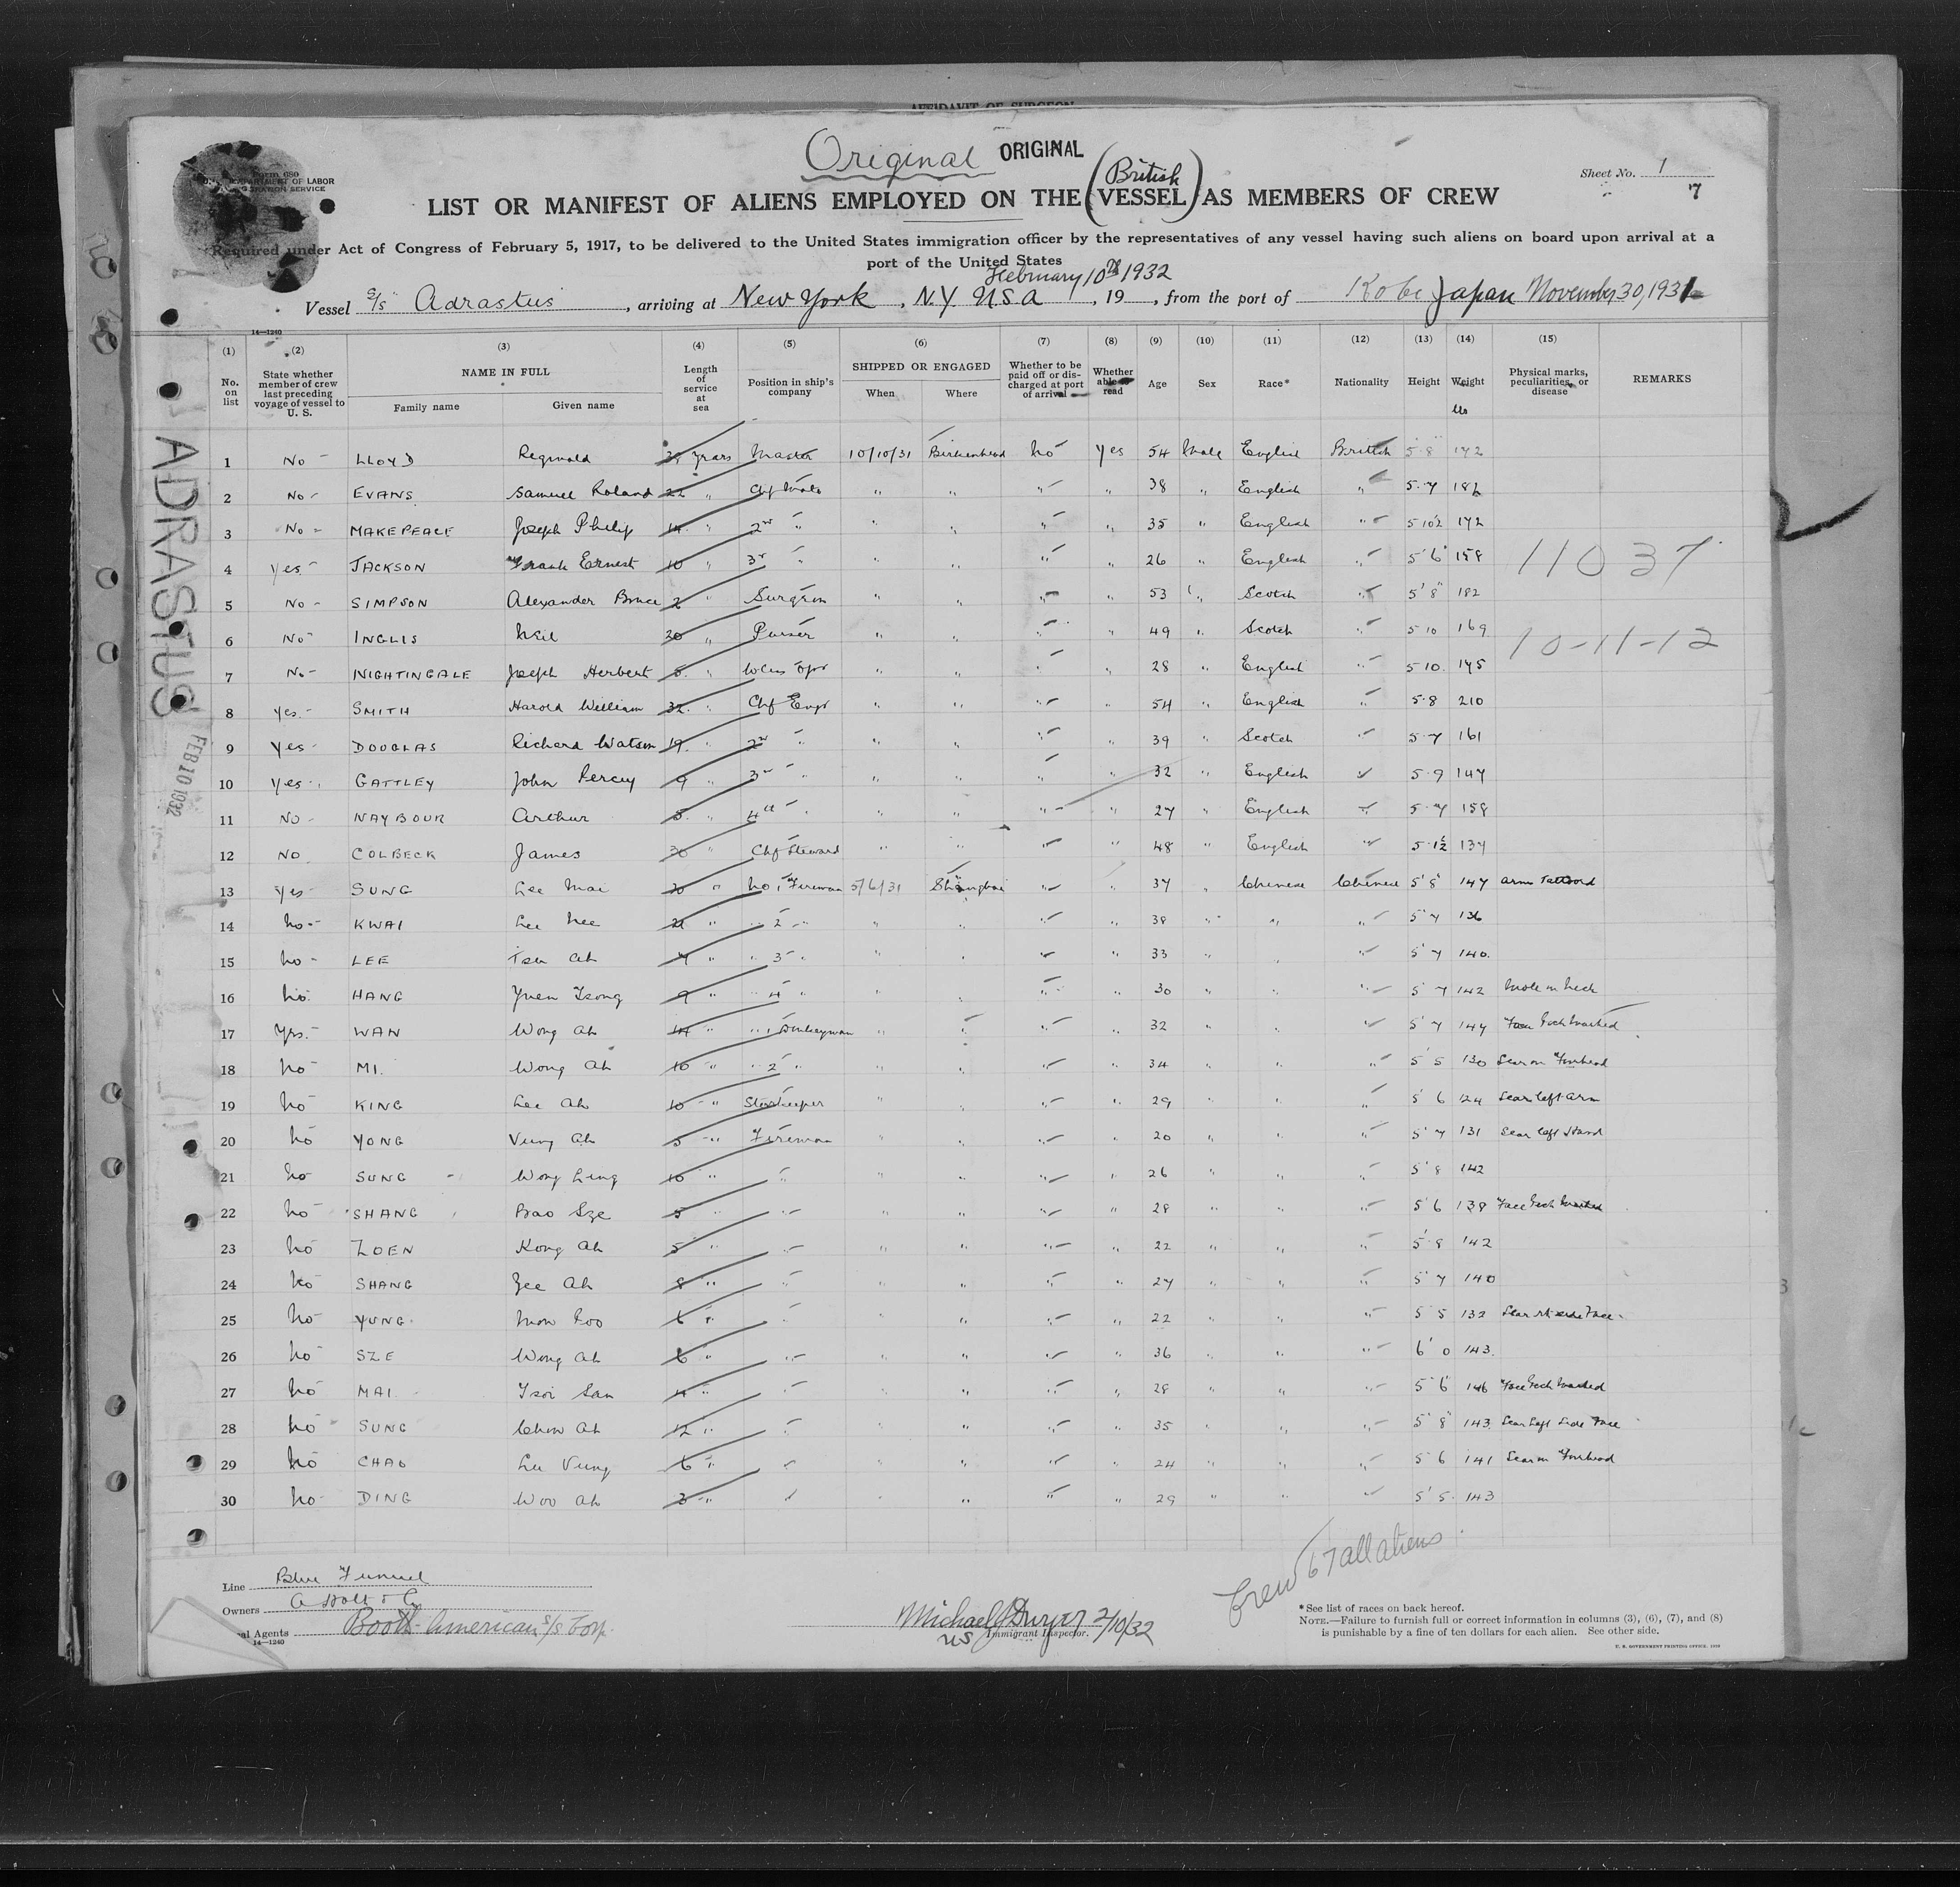 AFFIDAVIT OF SURGEON
Original ORIGINAL
Form 680
DEPARTMENT OF LABOR
Sheet No. 1
7
(British)
LIST OR MANIFEST OF ALIENS EMPLOYED ON THE (VESSEL) AS MEMBERS OF CREW
Required under Act of Congress of February 5, 1917, to be delivered to the United States immigration officer by the representatives of any vessel having such aliens on board upon arrival at a
port of the United States
February 10th 1932
Vessel S/S Adrastus, arriving at New York, N.Y. U.S.A, 19, from the port of Kobe Japan November 30, 1931
14—1240
(1) (2) (3) (4) (5) (6) (7) (8) (9) (10) (11) (12) (13) (14) (15)
No. on list
State whether member of crew last preceding voyage of vessel to U. S.
NAME IN FULL
Family name Given name
Length of service at sea
Position in ship's company
SHIPPED OR ENGAGED
When Where
Whether to be paid off or discharged at port of arrival
Whether able to read
Age Sex Race* Nationality Height Weight
lbs
Physical marks, peculiarities, or disease
REMARKS
1 No LLOYD Reginald years Master 10/10/31 Birkenhead No Yes 54 Male English British 5 8 172
2 No EVANS Samuel Roland 22 " Chf Mate " " " " 38 " English " 5.7 182
3 No MAKEPEACE Joseph Philip 14 " 2nd " " " " " 35 " English " 5 10½ 172
4 Yes JACKSON Frank Ernest 10 " 3rd " " " " " 26 " English " 5'6" 158
5 No SIMPSON Alexander Bruce 2 " Surgeon " " " " 53 " Scotch " 5'8" 182
6 No INGLIS Neil 20 " Purser " " " " 49 " Scotch " 5 10 169
7 No NIGHTINGALE Joseph Herbert 5 " Wless Opr " " " " 28 " English " 5 10 145
8 Yes SMITH Harold William 32 " Chf Engr " " " " 54 " English " 5.8 210
9 Yes DOUGLAS Richard Watson 19 " 2nd " " " " " 39 " Scotch " 5.7 161
10 Yes GATTLEY John Percy 9 " 3rd " " " " " 32 " English " 5.9 147
11 No NAYBOUR Arthur 5 " 4th " " " " " 27 " English " 5.7 158
12 No COLBECK James 30 " Chf Steward " " " " 48 " English " 5.1½ 137
13 Yes SUNG Lee Mai 20 " No 1 Fireman 5/6/31 Shanghai " " 37 " Chinese Chinese 5'8" 147 Arms Tattooed
14 No KWAI Lee Nee 21 " " 2 " " " " " 38 " " " 5'7 136
15 No LEE Tsu Ah 7 " " 3 " " " " " 33 " " " 5'7 140
16 No HANG Yuen Tsong 9 " " 4 " " " " " 30 " " " 5 7 142 Mole on Neck
17 Yes WAN Wong Ah 14 " " 1 Donkeyman " " " " 32 " " " 5'7 147 Face Pock Marked
18 No MI Wong Ah 10 " " 2 " " " " " 34 " " " 5 5 130 Scar on Forehead
19 No KING Lee Ah 10 " Storekeeper " " " " 29 " " " 5 6 124 Scar left arm
20 No YONG Vung Ah 5 " Fireman " " " " 20 " " " 5'7 131 Scar left Hand
21 No SUNG Wong Ling 10 " " " " " " 26 " " " 5'8 142
22 No SHANG Bao Sze 5 " " " " " " 28 " " " 5'6 138 Face Pock Marked
23 No ZOEN Kong Ah 5 " " " " " " 22 " " " 5.8 142
24 No SHANG Zee Ah 8 " " " " " " 27 " " " 5'7 140
25 No YUNG Mow Foo 6 " " " " " " 22 " " " 5 5 132 Scar Rt side Face
26 No SZE Wong Ah 6 " " " " " " 36 " " " 6'0 143
27 No MAI Tsoi San 4 " " " " " " 28 " " " 5'6 146 Face Pock Marked
28 No SUNG Chow Ah 12 " " " " " " 35 " " " 5'8" 143 Scar Left Side Face
29 No CHAO Lu Vung 6 " " " " " " 24 " " " 5 6 141 Scar on Forehead
30 No DING Woo Ah 3 " " " " " " 29 " " " 5'5 143
11037
10-11-12
ADRASTUS
FEB 10 1932
Crew 67 all aliens
Line Blue Funnel
Owners A Holt & Co
al Agents Booth American S/S Corp.
14—1240
Michael J Dwyer 2/10/32
US Immigrant Inspector.
*See list of races on back hereof.
NOTE.—Failure to furnish full or correct information in columns (3), (6), (7), and (8)
is punishable by a fine of ten dollars for each alien. See other side.
U. S. GOVERNMENT PRINTING OFFICE